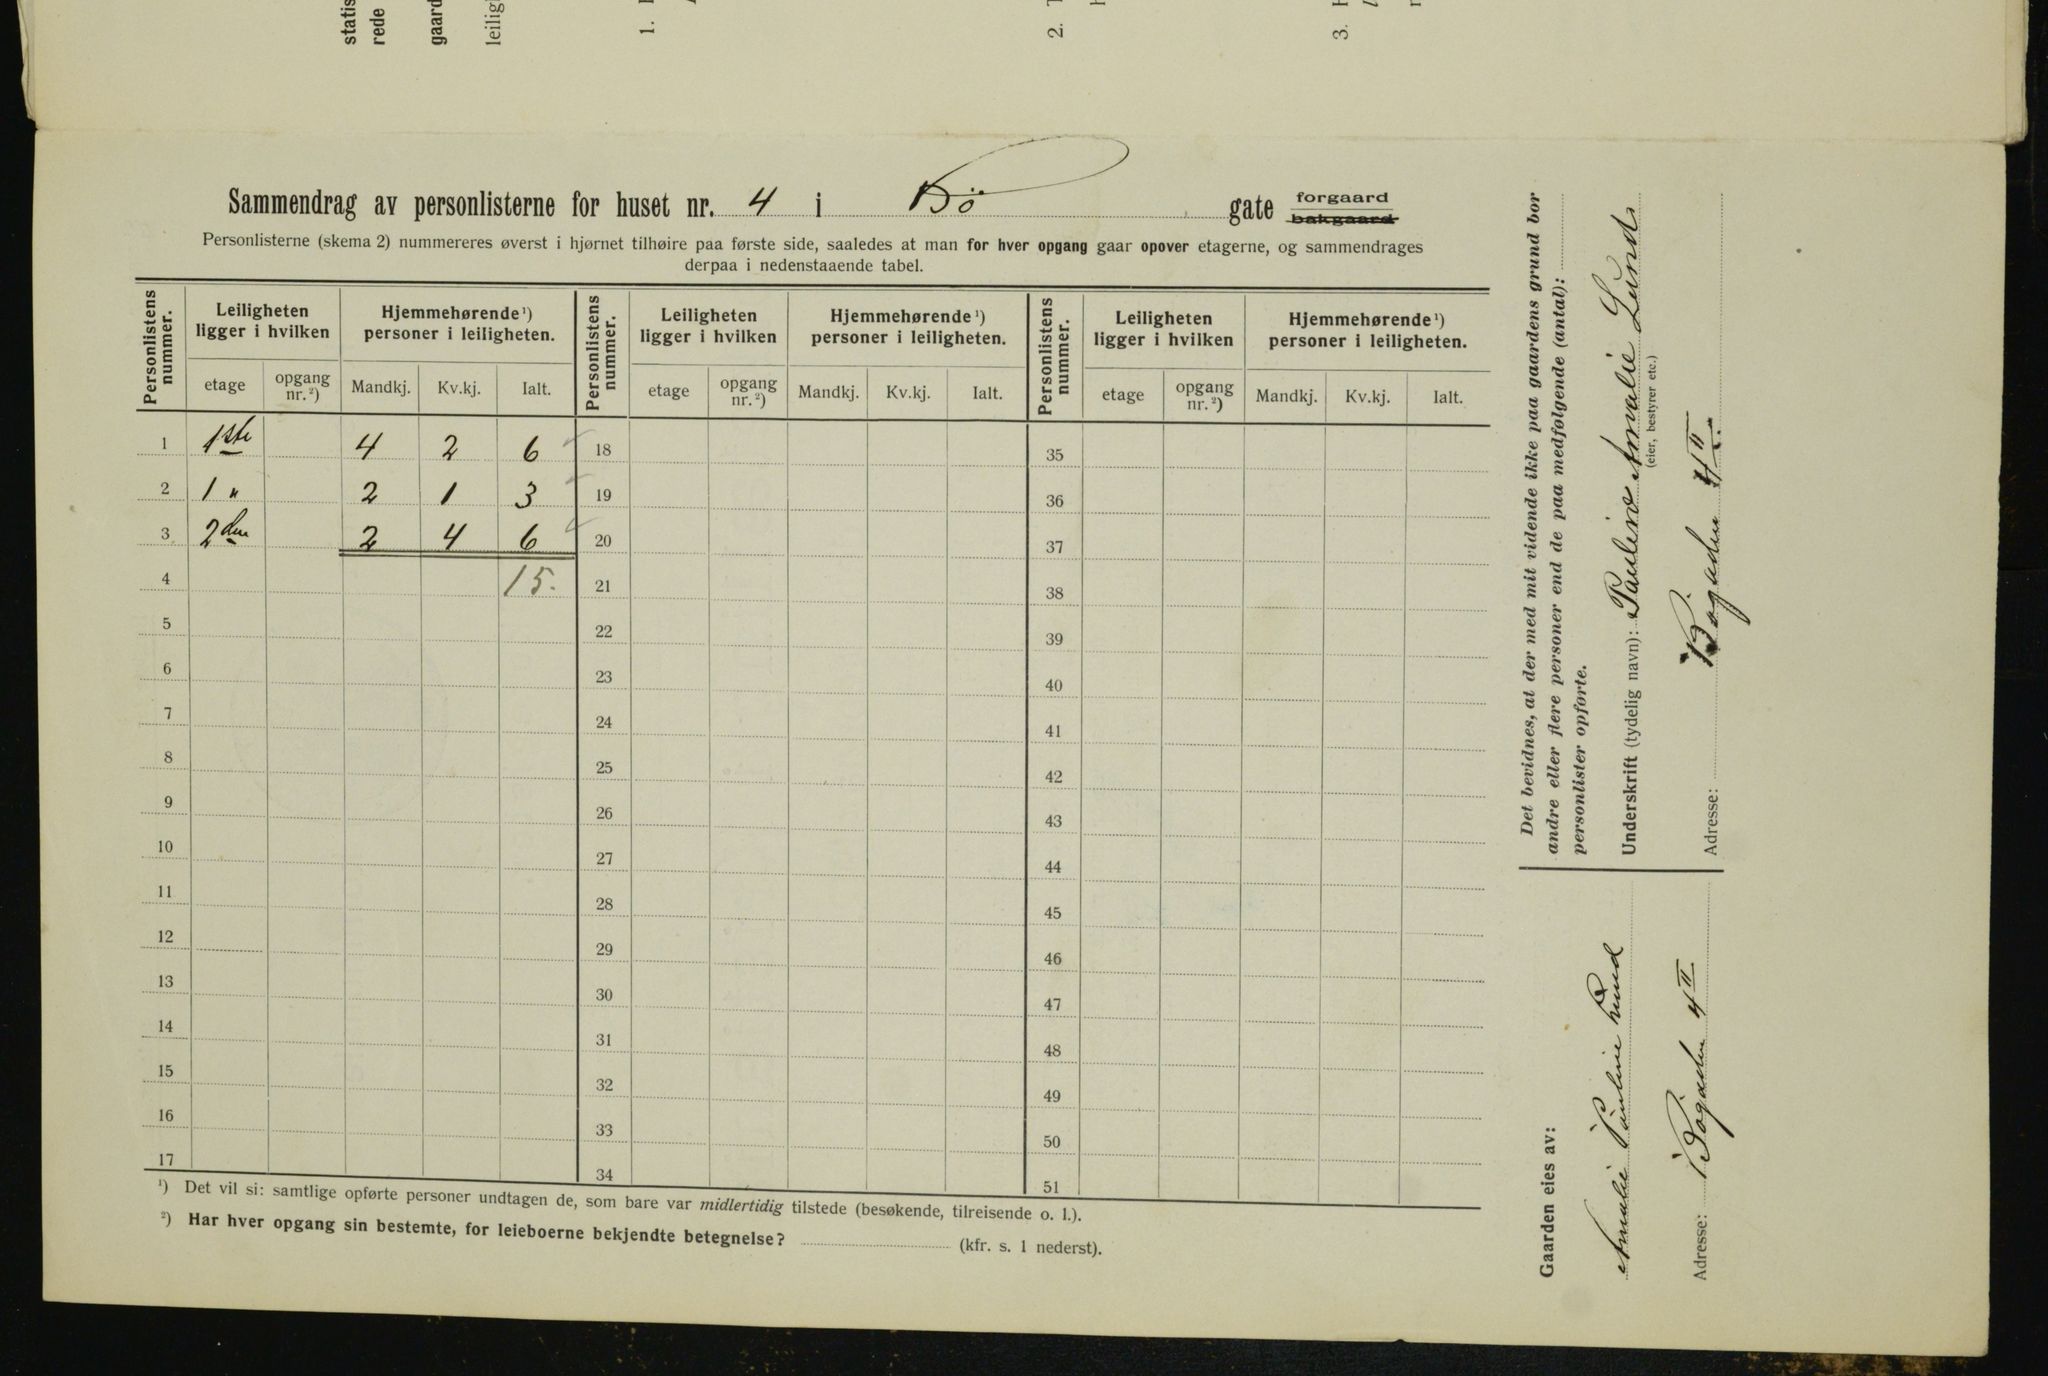 statis
rede
gaard
leilig
1.
2.
3.
Sammendrag av personlisterne for huset nr. 4 i Bö gate forgaard bakgaard
Personlisterne (skema 2) nummereres øverst i hjørnet tilhøire paa første side, saaledes at man for hver opgang gaar opover etagerne, og sammendrages
derpaa i nedenstaaende tabel.
Personlistens nummer. Leiligheten ligger i hvilken Hjemmehørende ¹) personer i leiligheten. Personlistens nummer. Leiligheten ligger i hvilken Hjemmehørende ¹) personer i leiligheten. Personlistens nummer. Leiligheten ligger i hvilken Hjemmehørende ¹) personer i leiligheten.
etage opgang nr. ²) Mandkj. Kv.kj. Ialt. etage opgang nr. ²) Mandkj. Kv.kj. Ialt. etage opgang nr. ²) Mandkj. Kv.kj. Ialt.
1 1ste 4 2 6 18 35
2 1 " 2 1 3 19 36
3 2den 2 4 6 20 37
4 15. 21 38
5 22 39
6 23 40
7 24 41
8 25 42
9 26 43
10 27 44
11 28 45
12 29 46
13 30 47
14 31 48
15 32 49
16 33 50
17 34 51
¹) Det vil si: samtlige opførte personer undtagen de, som bare var midlertidig tilstede (besøkende, tilreisende o. l.).
²) Har hver opgang sin bestemte, for leieboerne bekjendte betegnelse? (kfr. s. 1 nederst).
Det bevidnes, at der med mit vidende ikke paa gaardens grund bor
andre eller flere personer end de paa medfølgende (antal):
personlister opførte.
Underskrift (tydelig navn): Pauline Amalie Lund.
(eier, bestyrer etc.)
Adresse: Bøgaden 4 II.
Gaarden eies av:
Amalie Pauline Lund
Adresse: Bögaden 4 II